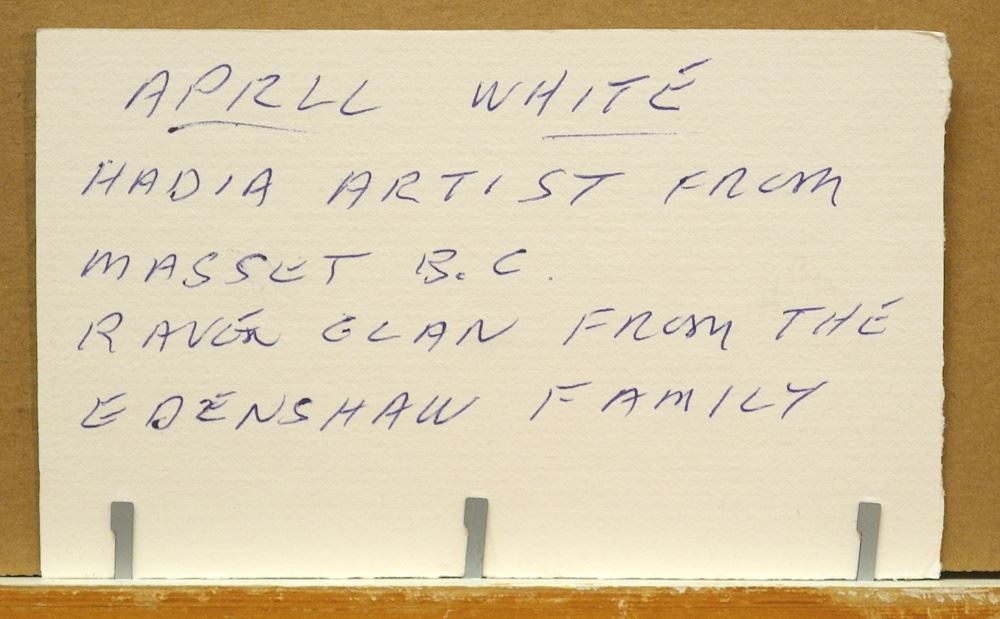 APRIL WHITE
HADIA ARTIST FROM
MASSET B.C.
RAVEN CLAN FROM THE
EDENSHAW FAMILY